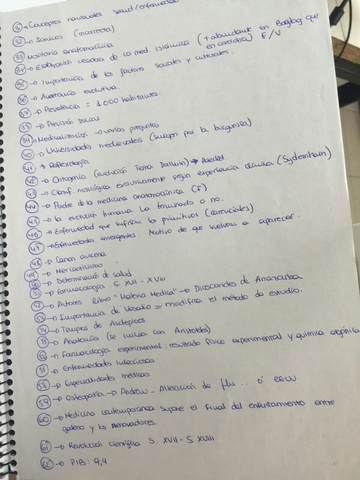 31 → Conceptos naturales salud/enfermedad
32 → Jónicos (incorrecta)
33 anatomoclínica
34 → Elaboración de la med. islámica (+ abundante en Bagdag que en Córdoba) F/V
35 → Importancia de los factores sociales y culturales.
36 → evolutiva.
37 → Prevalencia = 1.000 habitantes.
38 → Previsión social
39 → Medicalización → varias preguntas
40 → Universidades medievales (surgen por la burguesía)
41 → Reflexología
42 → Ontogenia (evolución Darwin) → Haeckel
43 → Clasif. nosológica exclusivamente según experiencia clínica (Sydenham)
44 → Padre de la medicina anatomoclínica
45 → la evolución humana ha terminado o no.
46 → Enfermedad que sufrían los primitivos
47 → Enfermedades emergentes. Motivo de que vuelvan a aparecer.
48 → Canon avicena
49 → Mercantilismo
50 → Determinación de salud
51 → Farmacología S. XII - XVIII
52 → Autores libro "Materia Medica" → Dioscorides de Anazarba
53 → Importancia de Vesalio = modifica el método de estudio.
54 → Templos de Asclepios
55 → Anatomía (se inicia con Aristóteles)
56 → Farmacología experimental: resultado físico experimental y química orgánica
57 → Enfermedades infecciosas
58 → Especialidades médicas
59 → Osteopatía → Andrew - Alteración de flu... ó EEUU
60 → Medicina contemporanea supone el final del enfrentamiento entre
galeno y los renovadores.
61 → Revolución científica S. XVII - S XVIII
62 → PIB: 9,4